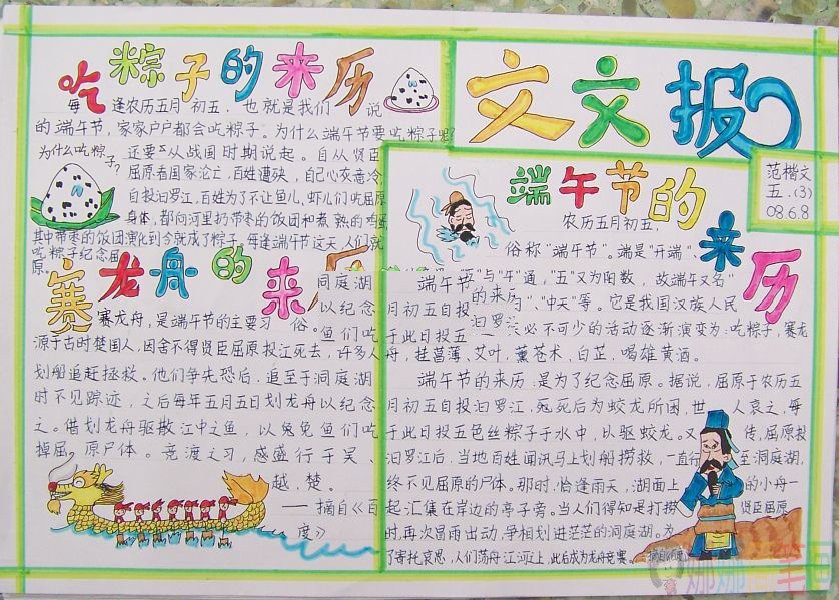 吃粽子的来历
每逢农历五月初五，也就是我们说
的端午节，家家户户都会吃粽子。为什么端午节要吃粽子呢？
为什么吃粽子？
还要从战国时期说起。自从贤臣
屈原看国家沦亡，百姓遭殃，自己心灰意冷，
自投汩罗江，百姓为了不让鱼儿，虾儿们吃屈原
身体，都向河里扔带枣的饭团和煮熟的鸡蛋
其中带枣的饭团演化到今就成了粽子。每逢端午节这天，人们就
吃粽子纪念屈
原。
赛龙舟的来历
赛龙舟，是端午节的主要习俗。
源于古时楚国人，因舍不得贤臣屈原投江死去，许多人
划船追赶拯救。他们争先恐后，追至于洞庭湖
时不见踪迹，之后每年五月五日划龙舟以纪念
之。借划龙舟驱散江中之鱼，以免鱼们吃
掉屈原尸体。竞渡之习，感盛行于吴、
越、楚。
——摘自《百
度》
洞庭湖
以纪念
鱼们吃
文文报
范楷文
五.(3)
08.6.8
端午节的来历
农历五月初五，
俗称“端午节”。端是“开端”、
与“午”通，“五”又为阳数，故端午又名“
“中天”等。它是我国汉族人民
必不可少的活动逐渐演变为：吃粽子，赛龙
舟，挂菖蒲、艾叶，薰苍术、白芷，喝雄黄酒。
端午节
月初五自投
于此日投五
的来历
汩罗
端午节的来历，是为了纪念屈原。据说，屈原于农历五
月初五自投汩罗江，死后为蛟龙所困，世人哀之，每
于此日投五色丝粽子于水中，以驱蛟龙。又传，屈原投
汩罗江后，当地百姓闻讯马上划船捞救，一直行至洞庭湖，
终不见屈原的尸体。那时，恰逢雨天，湖面上的小舟一
起汇集在岸边的亭子旁。当人们得知是打捞贤臣屈原
时，再次冒雨出动，争相划进茫茫的洞庭湖。为
了寄托哀思，人们荡舟江河上，此后成为龙舟竞赛。